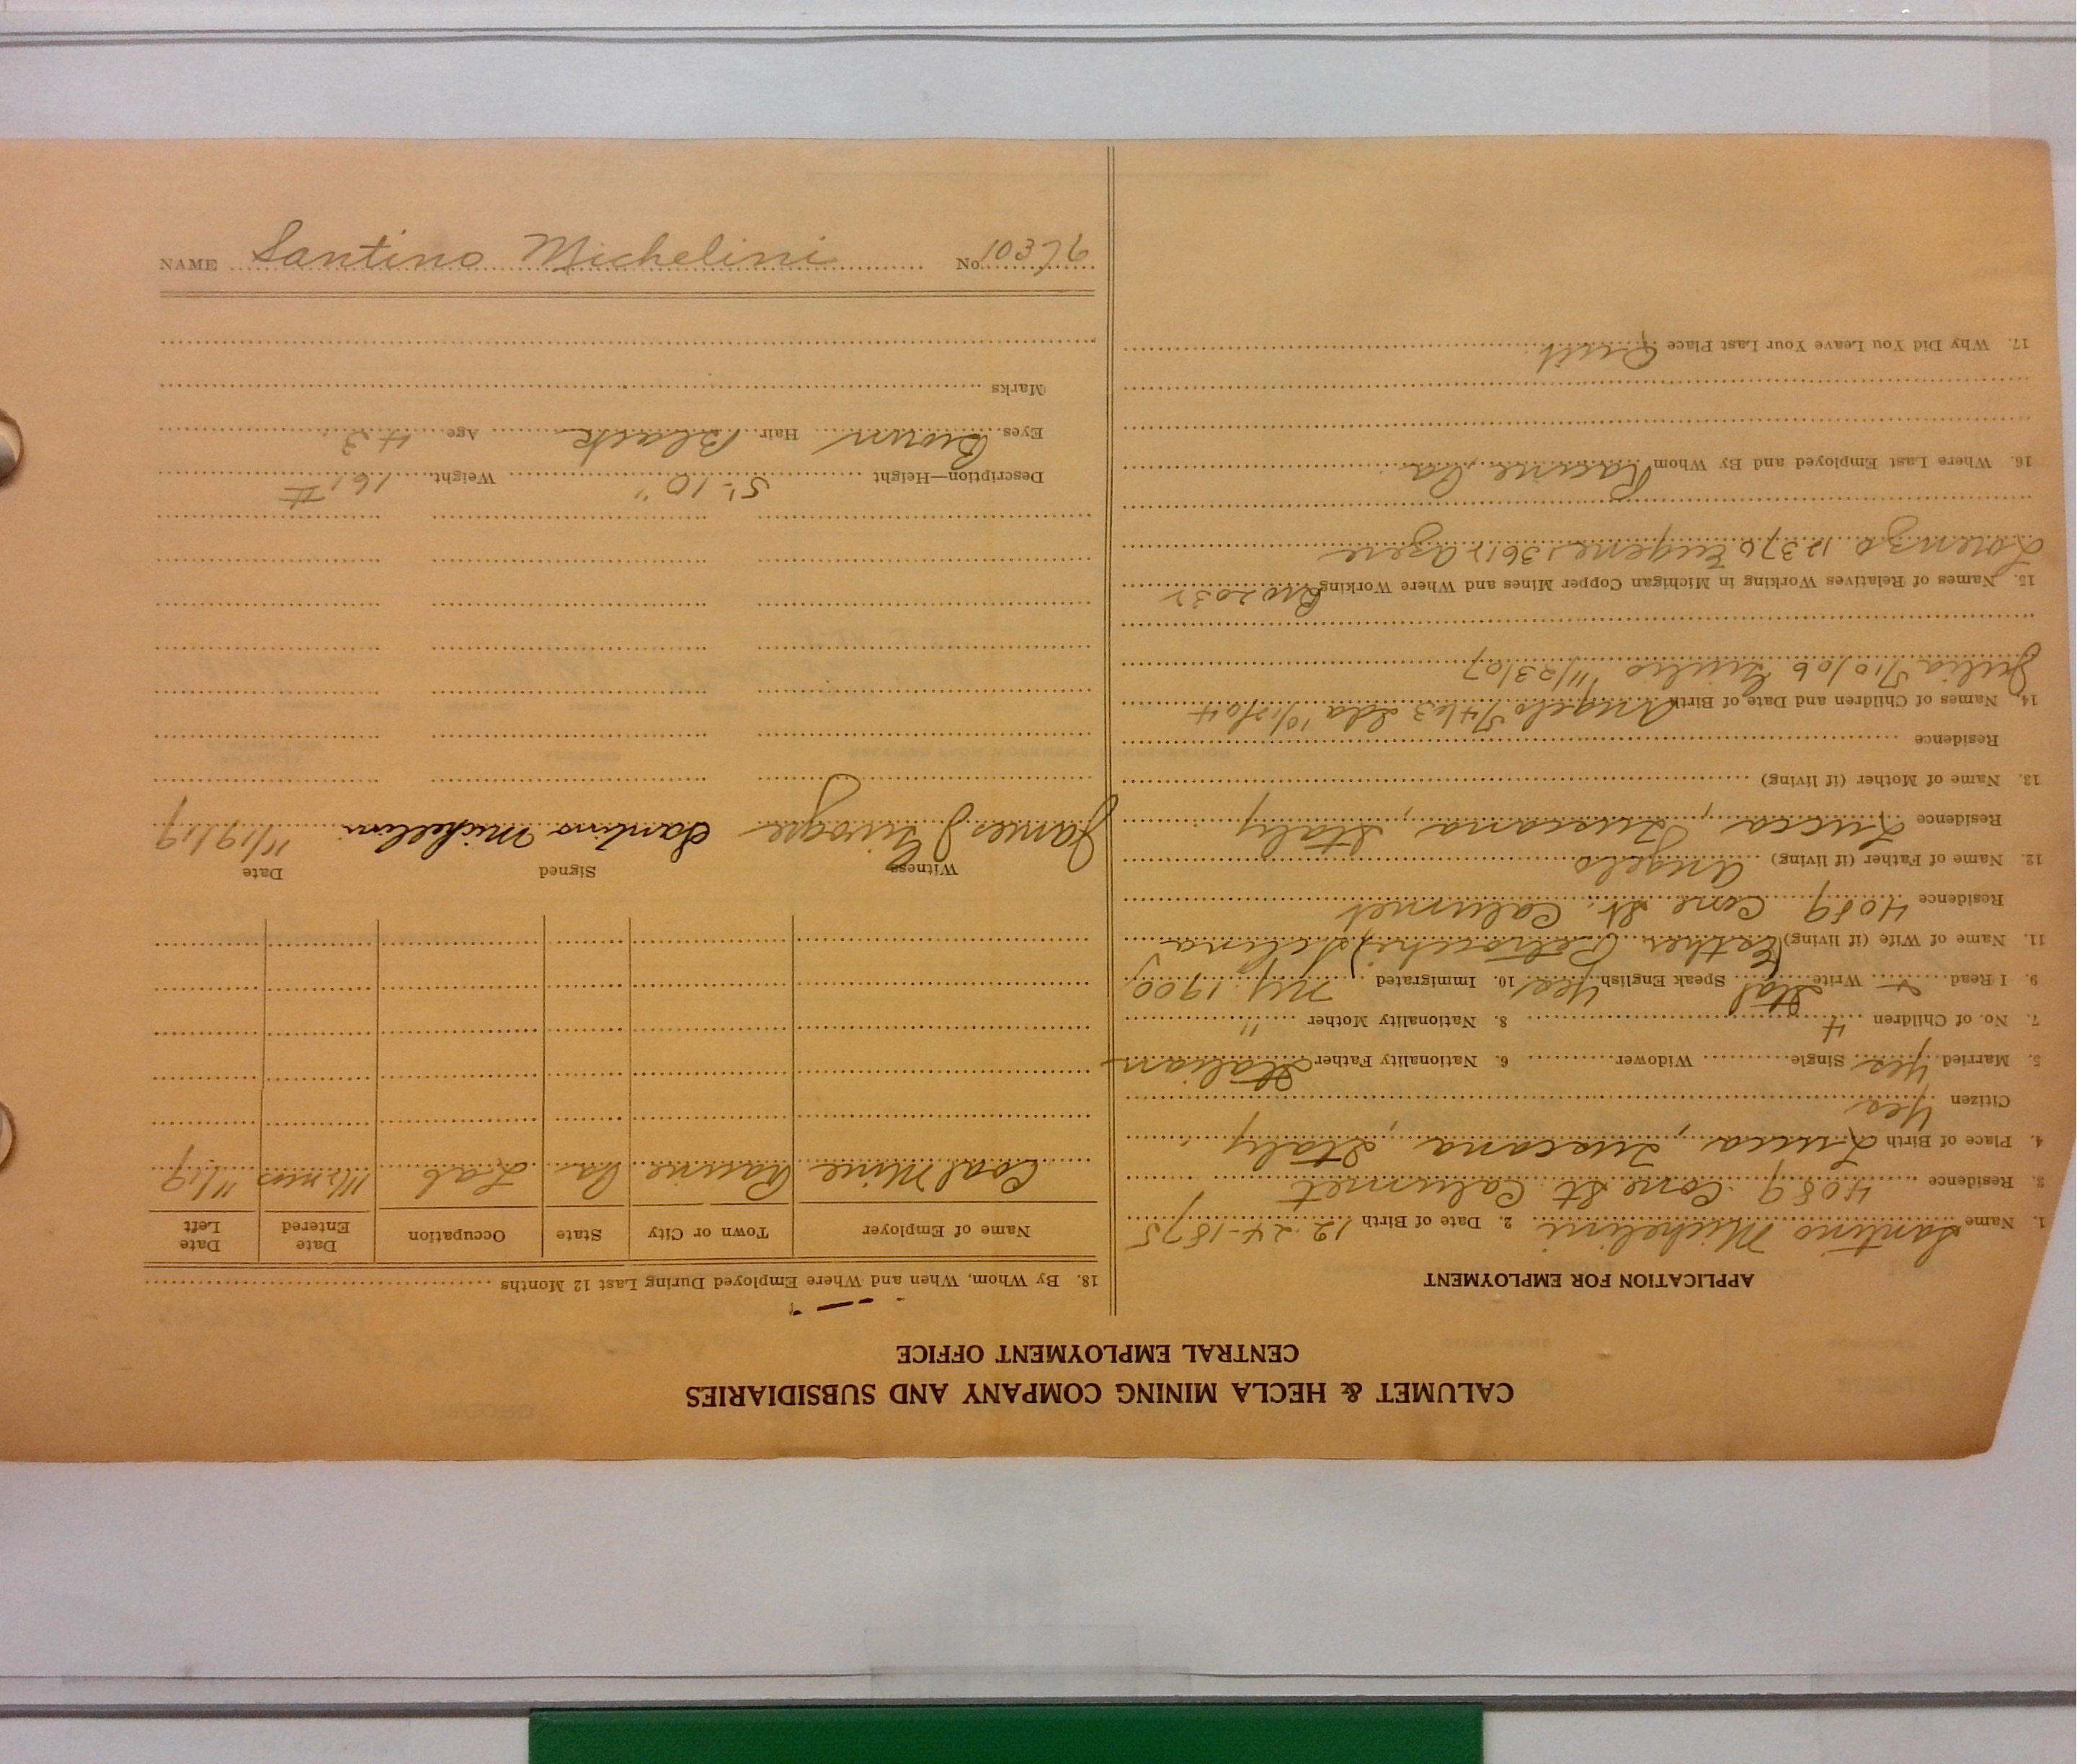 CALUMET & HECLA MINING COMPANY AND SUBSIDIARIES
CENTRAL EMPLOYMENT OFFICE
APPLICATION FOR EMPLOYMENT
1. Name Santino Michelini 2. Date of Birth 12-24-1875
3. Residence 4089 Cone St. Calumet
4. Place of Birth Lucca, Tuscana, Italy
Citizen Yes
5. Married Yes Single Widower 6. Nationality Father Italian
7. No. of Children 4 8. Nationality Mother "
9. I Read Write Ital Speak English Yes 10. Immigrated NY 1900
11. Name of Wife (if living) Esther
Residence 4089 Cone St. Calumet
12. Name of Father (if living) Angelo
Residence Lucca, Tuscana, Italy
13. Name of Mother (if living)
Residence
14. Names of Children and Date of Birth Angelo Ida 10/12/04
Julia 5/10/06 11/23/07
15. Names of Relatives Working in Michigan Copper Mines and Where Working
Lorenzo 12376 Eugene 13612
16. Where Last Employed and By Whom Racine, Pa
17. Why Did You Leave Your Last Place Quit
18. By Whom, When and Where Employed During Last 12 Months
Name of Employer Town or City State Occupation Date Entered Date Left
Coal Mine Racine Pa Lab 11/19
Witness Signed Date
James Santino Michelini 11/19/19
Description—Height 5'-10" Weight 161 #
Eyes Brown Hair Black Age 43
Marks
NAME Santino Michelini No. 10376